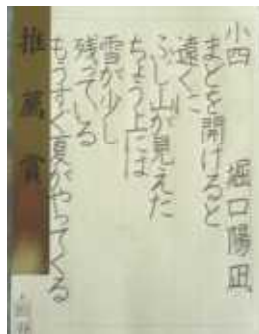 小四 堀口陽凪
まどを開けると
遠くに
ふじ山が見えた
ちょう上には
雪が少し
残っている
もうすぐ夏がやってくる
推薦賞